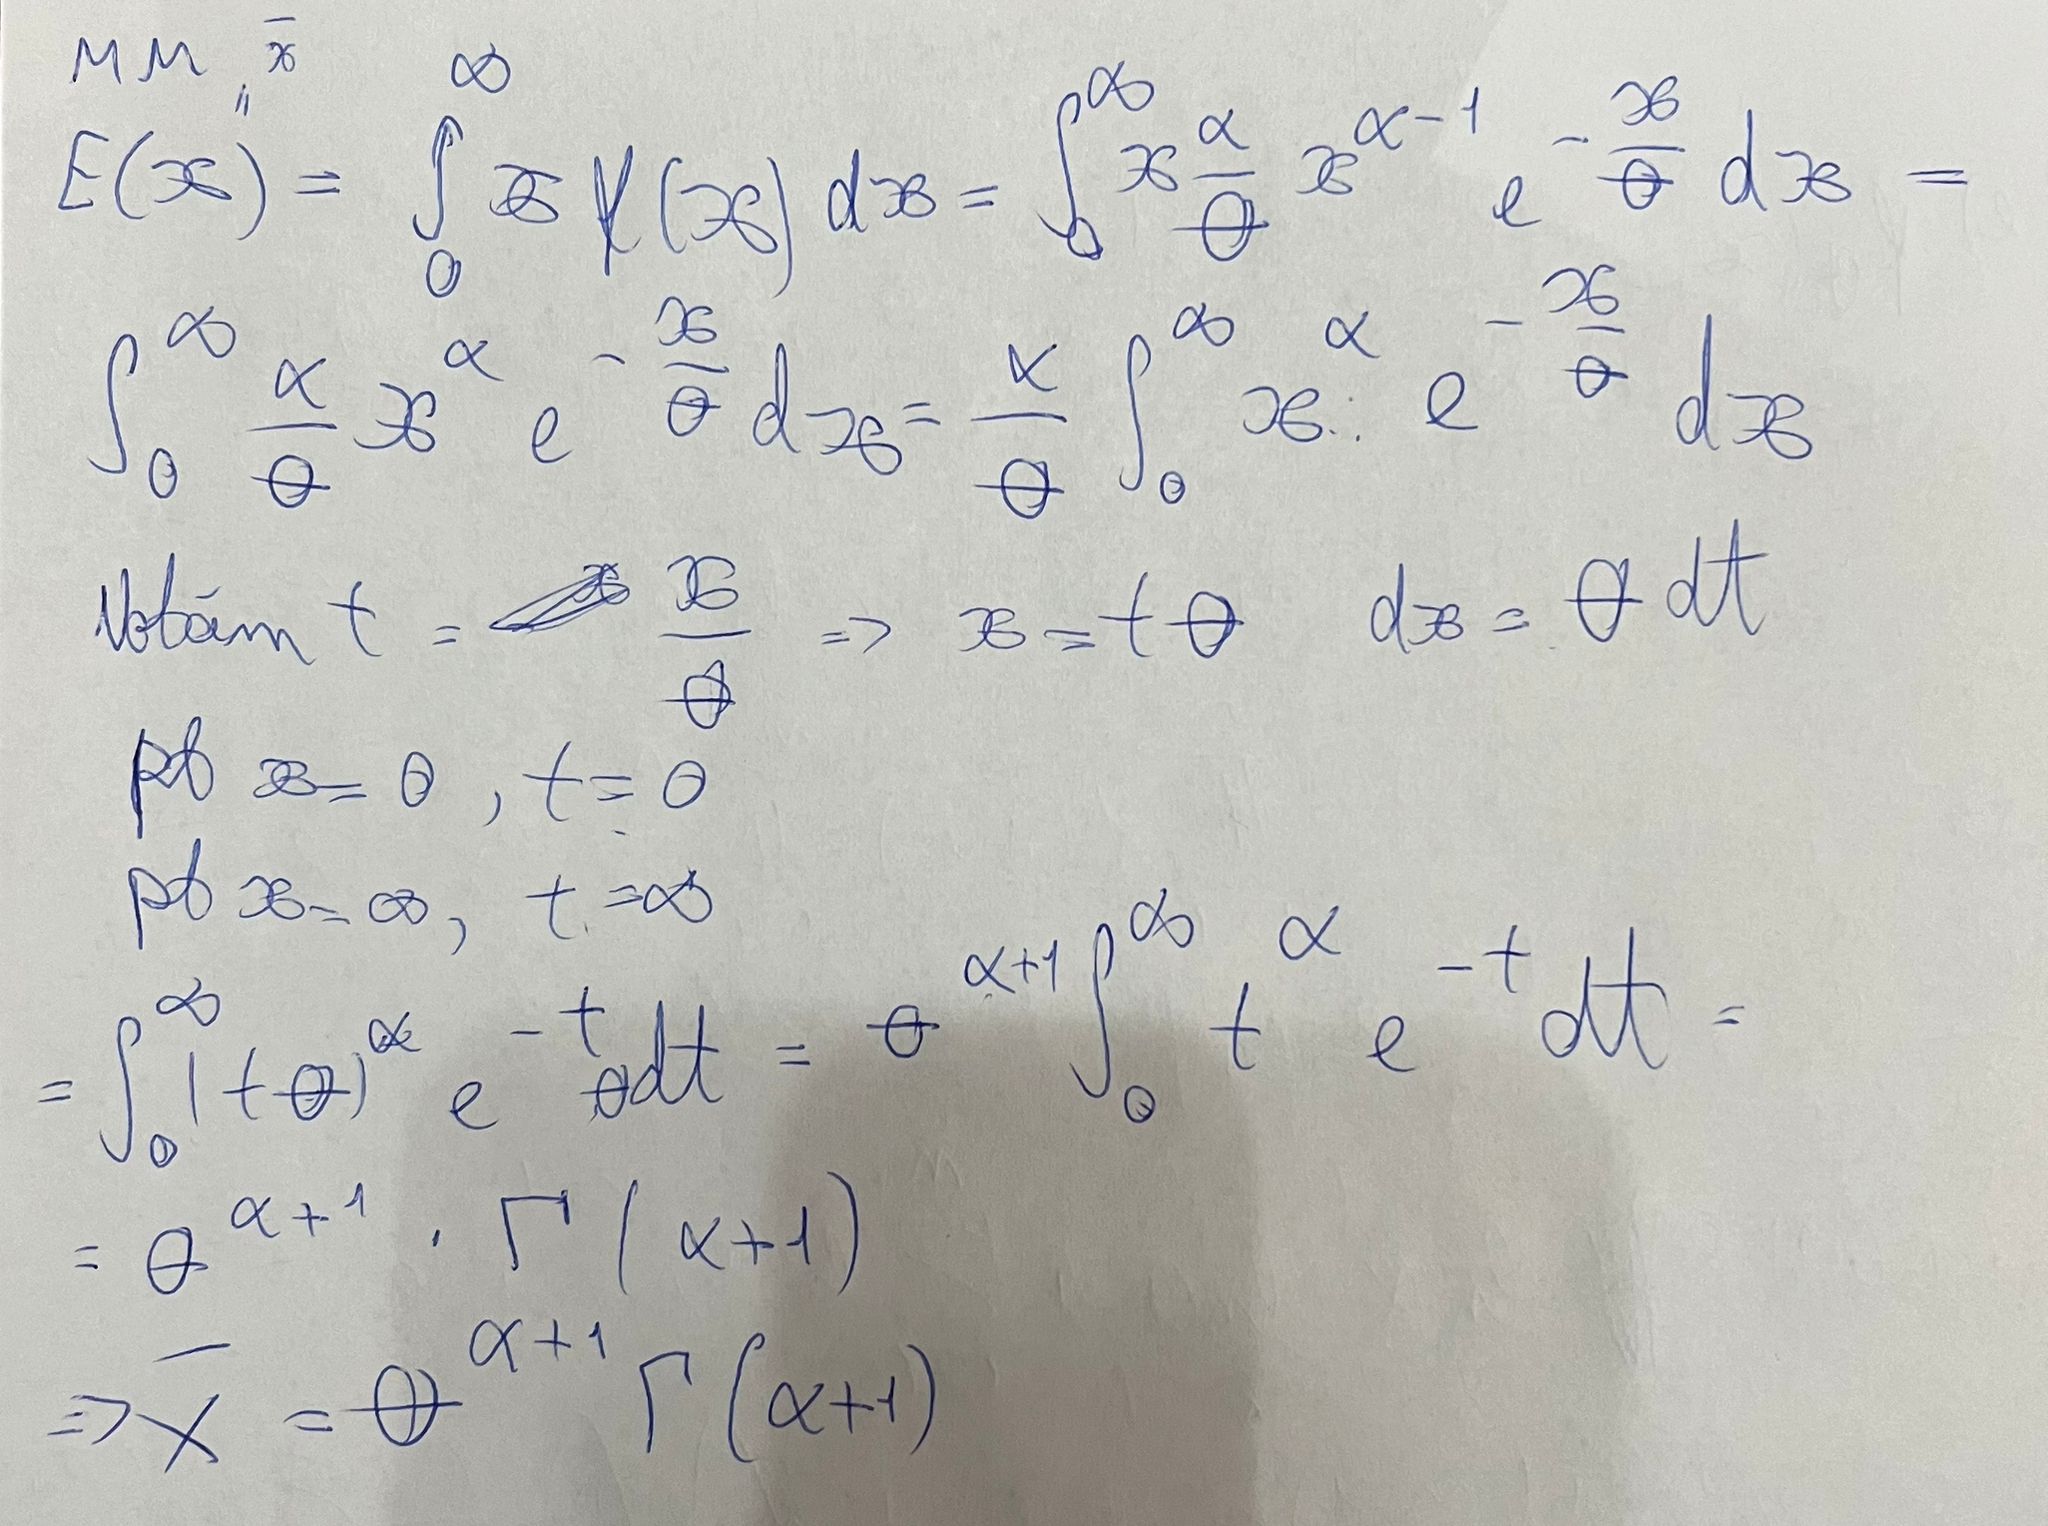 MM x̄
E(x) = ∫₀^∞ x f(x) dx = ∫₀^∞ x α/θ x^(α-1) e^(-x/θ) dx =
∫₀^∞ α/θ x^α e^(-x/θ) dx = α/θ ∫₀^∞ x^α e^(-x/θ) dx
Notăm t = x/θ => x = tθ dx = θ dt
pt x = 0, t = 0
pt x = ∞, t = ∞
= ∫₀^∞ (tθ)^α e^(-t) θdt = θ^(α+1) ∫₀^∞ t^α e^(-t) dt =
= θ^(α+1) · Γ(α+1)
=> X̄ = θ^(α+1) Γ(α+1)